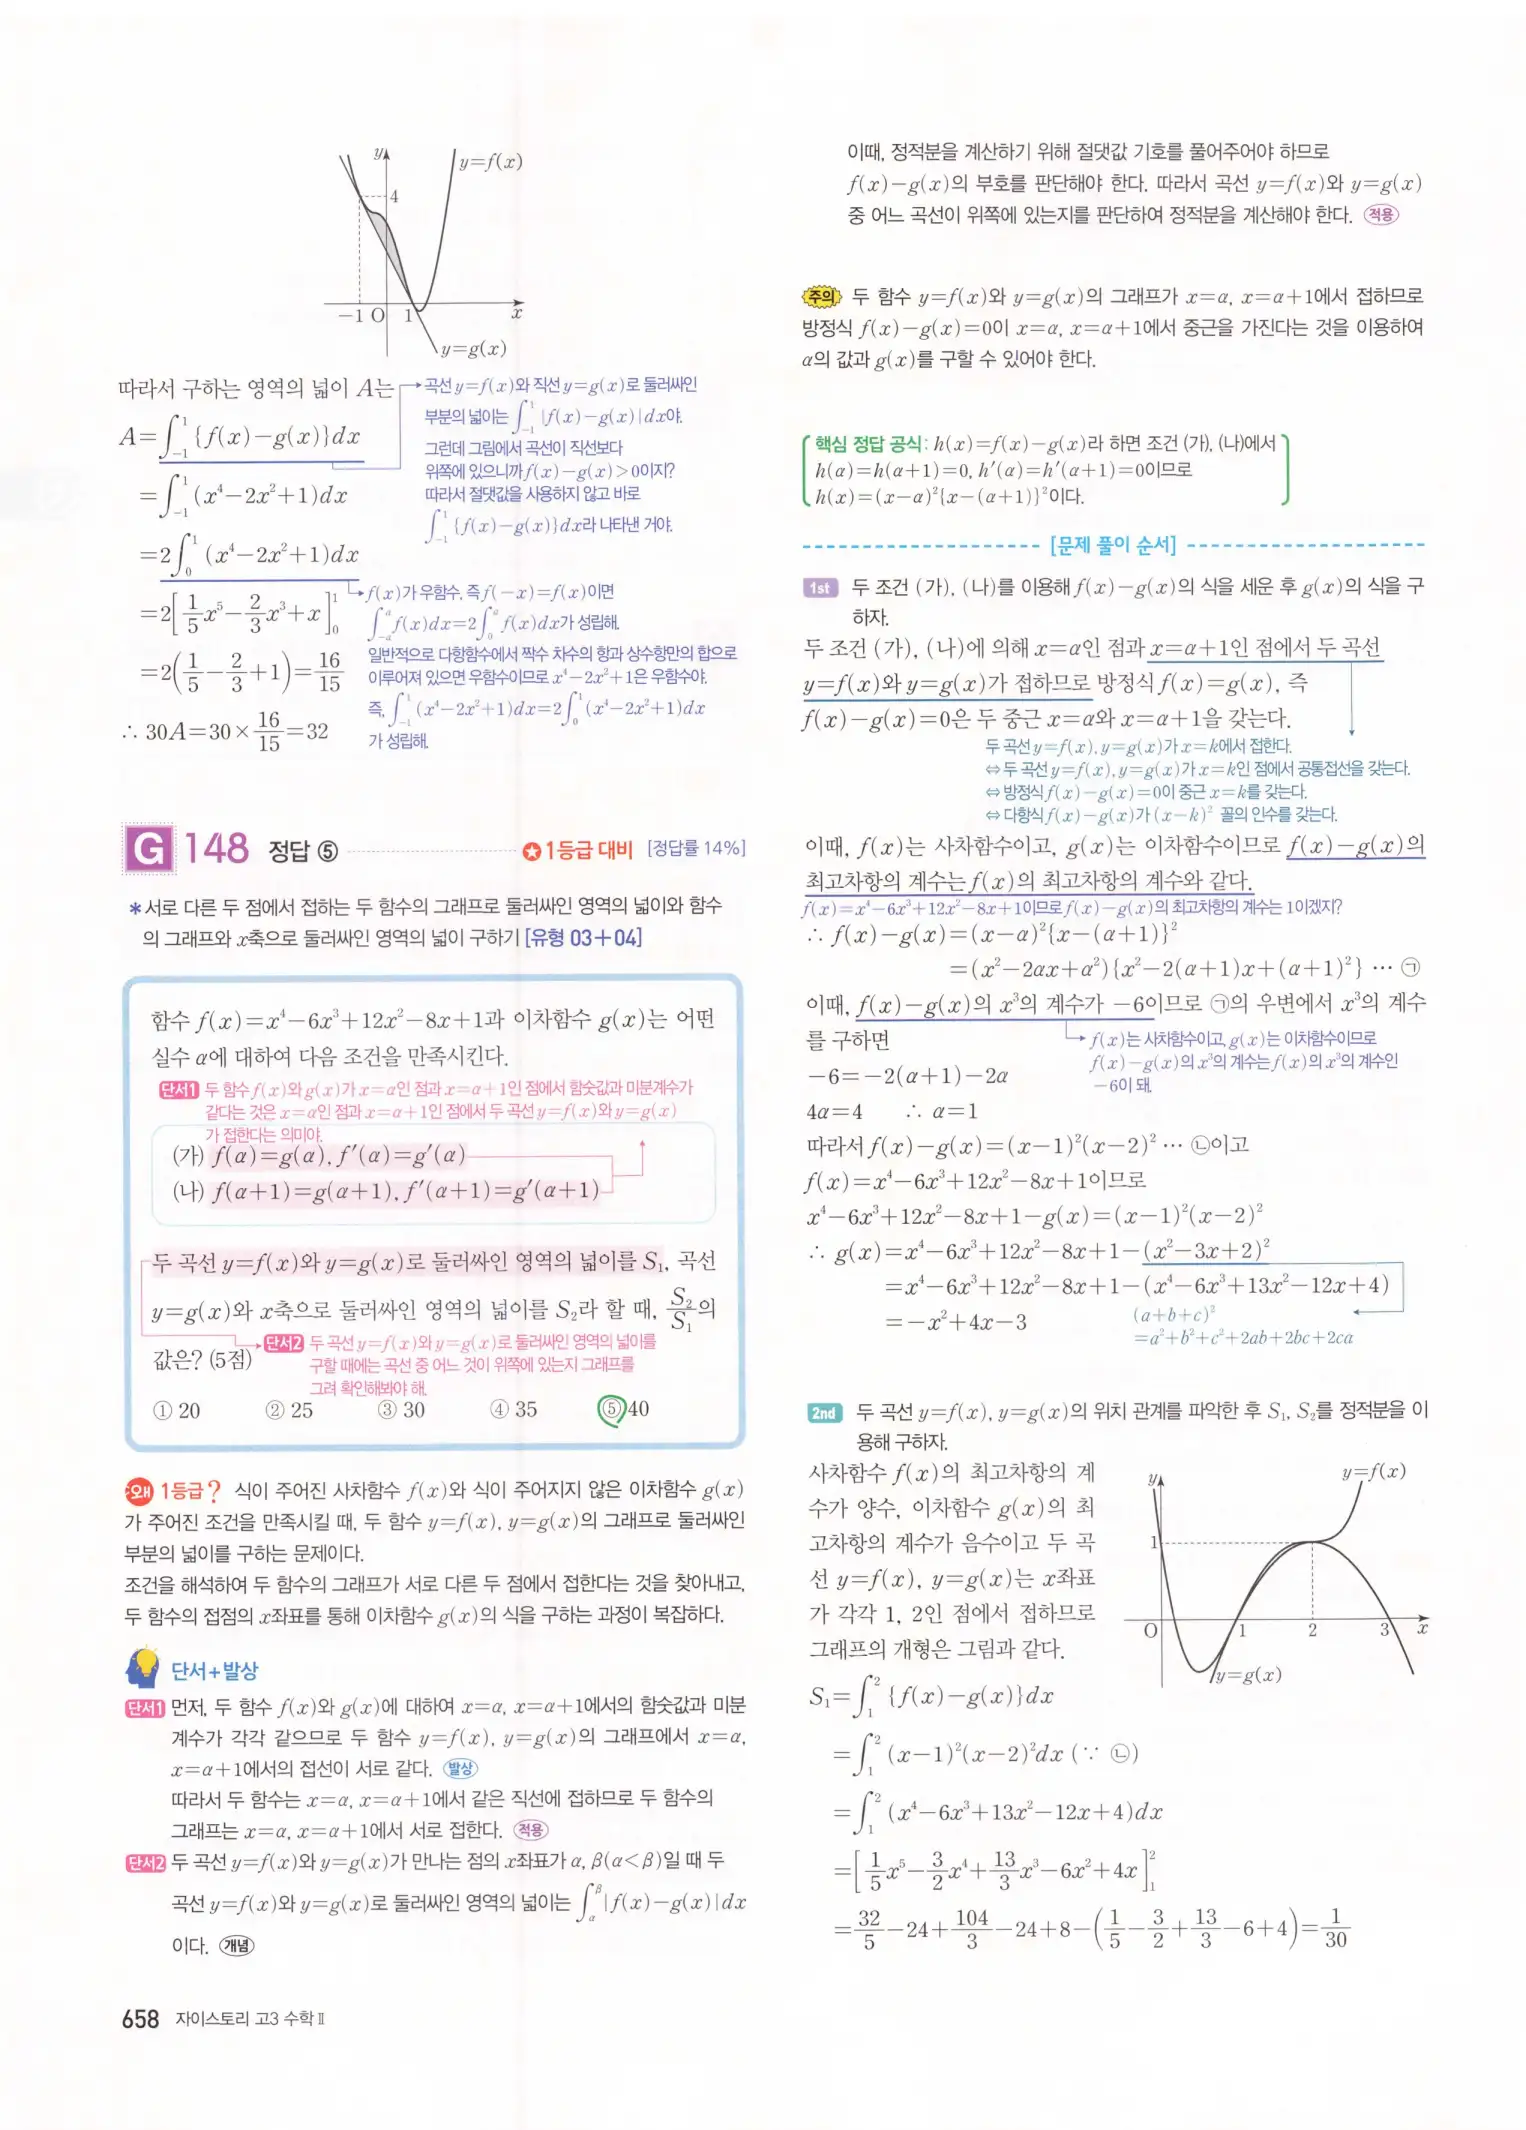 y
y=f(x)
4
-1 O 1 x
y=g(x)
따라서 구하는 영역의 넓이 A는
A=∫₋₁¹{f(x)-g(x)}dx
=∫₋₁¹(x⁴-2x²+1)dx
=2∫₀¹(x⁴-2x²+1)dx
=2[1/5x⁵-2/3x³+x]₀¹
=2(1/5-2/3+1)=16/15
∴ 30A=30×16/15=32
곡선 y=f(x)와 직선 y=g(x)로 둘러싸인
부분의 넓이는 ∫₋₁¹|f(x)-g(x)|dx야.
그런데 그림에서 곡선이 직선보다
위쪽에 있으니까 f(x)-g(x)>0이지?
따라서 절댓값을 사용하지 않고 바로
∫₋₁¹{f(x)-g(x)}dx라 나타낸 거야.
f(x)가 우함수, 즉 f(-x)=f(x)이면
∫₋ₐᵃf(x)dx=2∫₀ᵃf(x)dx가 성립해.
일반적으로 다항함수에서 짝수 차수의 항과 상수항만의 합으로
이루어져 있으면 우함수이므로 x⁴-2x²+1은 우함수야.
즉, ∫₋₁¹(x⁴-2x²+1)dx=2∫₀¹(x⁴-2x²+1)dx
가 성립해.
G 148 정답 ⑤ ✪ 1등급 대비 [정답률 14%]
*서로 다른 두 점에서 접하는 두 함수의 그래프로 둘러싸인 영역의 넓이와 함수
의 그래프와 x축으로 둘러싸인 영역의 넓이 구하기 [유형 03+04]
함수 f(x)=x⁴-6x³+12x²-8x+1과 이차함수 g(x)는 어떤
실수 α에 대하여 다음 조건을 만족시킨다.
단서1 두 함수 f(x)와 g(x)가 x=α인 점과 x=α+1인 점에서 함숫값과 미분계수가
같다는 것은 x=α인 점과 x=α+1인 점에서 두 곡선 y=f(x)와 y=g(x)
가 접한다는 의미야.
(가) f(α)=g(α), f′(α)=g′(α)
(나) f(α+1)=g(α+1), f′(α+1)=g′(α+1)
두 곡선 y=f(x)와 y=g(x)로 둘러싸인 영역의 넓이를 S₁, 곡선
y=g(x)와 x축으로 둘러싸인 영역의 넓이를 S₂라 할 때, S₂/S₁의
값은? (5점)
단서2 두 곡선 y=f(x)와 y=g(x)로 둘러싸인 영역의 넓이를
구할 때에는 곡선 중 어느 것이 위쪽에 있는지 그래프를
그려 확인해봐야 해.
① 20 ② 25 ③ 30 ④ 35 ⑤ 40
왜 1등급? 식이 주어진 사차함수 f(x)와 식이 주어지지 않은 이차함수 g(x)
가 주어진 조건을 만족시킬 때, 두 함수 y=f(x), y=g(x)의 그래프로 둘러싸인
부분의 넓이를 구하는 문제이다.
조건을 해석하여 두 함수의 그래프가 서로 다른 두 점에서 접한다는 것을 찾아내고,
두 함수의 접점의 x좌표를 통해 이차함수 g(x)의 식을 구하는 과정이 복잡하다.
단서+발상
단서1 먼저, 두 함수 f(x)와 g(x)에 대하여 x=α, x=α+1에서의 함숫값과 미분
계수가 각각 같으므로 두 함수 y=f(x), y=g(x)의 그래프에서 x=α,
x=α+1에서의 접선이 서로 같다. 발상
따라서 두 함수는 x=α, x=α+1에서 같은 직선에 접하므로 두 함수의
그래프는 x=α, x=α+1에서 서로 접한다. 적용
단서2 두 곡선 y=f(x)와 y=g(x)가 만나는 점의 x좌표가 α, β(α<β)일 때 두
곡선 y=f(x)와 y=g(x)로 둘러싸인 영역의 넓이는 ∫_α^β|f(x)-g(x)|dx
이다. 개념
658 자이스토리 고3 수학 Ⅱ
이때, 정적분을 계산하기 위해 절댓값 기호를 풀어주어야 하므로
f(x)-g(x)의 부호를 판단해야 한다. 따라서 곡선 y=f(x)와 y=g(x)
중 어느 곡선이 위쪽에 있는지를 판단하여 정적분을 계산해야 한다. 적용
주의 두 함수 y=f(x)와 y=g(x)의 그래프가 x=α, x=α+1에서 접하므로
방정식 f(x)-g(x)=0이 x=α, x=α+1에서 중근을 가진다는 것을 이용하여
α의 값과 g(x)를 구할 수 있어야 한다.
핵심 정답 공식: h(x)=f(x)-g(x)라 하면 조건 (가), (나)에서
h(α)=h(α+1)=0, h′(α)=h′(α+1)=0이므로
h(x)=(x-α)²{x-(α+1)}²이다.
[문제 풀이 순서]
1st 두 조건 (가), (나)를 이용해 f(x)-g(x)의 식을 세운 후 g(x)의 식을 구
하자.
두 조건 (가), (나)에 의해 x=α인 점과 x=α+1인 점에서 두 곡선
y=f(x)와 y=g(x)가 접하므로 방정식 f(x)=g(x), 즉
f(x)-g(x)=0은 두 중근 x=α와 x=α+1을 갖는다.
두 곡선 y=f(x), y=g(x)가 x=k에서 접한다.
⇔ 두 곡선 y=f(x), y=g(x)가 x=k인 점에서 공통접선을 갖는다.
⇔ 방정식 f(x)-g(x)=0이 중근 x=k를 갖는다.
⇔ 다항식 f(x)-g(x)가 (x-k)² 꼴의 인수를 갖는다.
이때, f(x)는 사차함수이고, g(x)는 이차함수이므로 f(x)-g(x)의
최고차항의 계수는 f(x)의 최고차항의 계수와 같다.
f(x)=x⁴-6x³+12x²-8x+1이므로 f(x)-g(x)의 최고차항의 계수는 1이겠지?
∴ f(x)-g(x)=(x-α)²{x-(α+1)}²
=(x²-2αx+α²){x²-2(α+1)x+(α+1)²} … ㉠
이때, f(x)-g(x)의 x³의 계수가 -6이므로 ㉠의 우변에서 x³의 계수
를 구하면
f(x)는 사차함수이고, g(x)는 이차함수이므로
f(x)-g(x)의 x³의 계수는 f(x)의 x³의 계수인
-6이 돼.
-6=-2(α+1)-2α
4α=4 ∴ α=1
따라서 f(x)-g(x)=(x-1)²(x-2)² … ㉡이고
f(x)=x⁴-6x³+12x²-8x+1이므로
x⁴-6x³+12x²-8x+1-g(x)=(x-1)²(x-2)²
∴ g(x)=x⁴-6x³+12x²-8x+1-(x²-3x+2)²
=x⁴-6x³+12x²-8x+1-(x⁴-6x³+13x²-12x+4)
=-x²+4x-3
(a+b+c)²
=a²+b²+c²+2ab+2bc+2ca
2nd 두 곡선 y=f(x), y=g(x)의 위치 관계를 파악한 후 S₁, S₂를 정적분을 이
용해 구하자.
사차함수 f(x)의 최고차항의 계
수가 양수, 이차함수 g(x)의 최
고차항의 계수가 음수이고 두 곡
선 y=f(x), y=g(x)는 x좌표
가 각각 1, 2인 점에서 접하므로
그래프의 개형은 그림과 같다.
y
y=f(x)
1
O 1 2 3 x
y=g(x)
S₁=∫₁²{f(x)-g(x)}dx
=∫₁²(x-1)²(x-2)²dx (∵ ㉡)
=∫₁²(x⁴-6x³+13x²-12x+4)dx
=[1/5x⁵-3/2x⁴+13/3x³-6x²+4x]₁²
=32/5-24+104/3-24+8-(1/5-3/2+13/3-6+4)=1/30